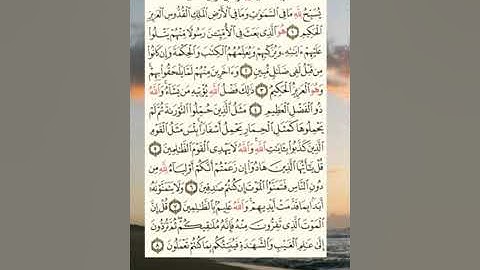 يُسَبِّحُ لِلَّهِ مَا فِي السَّمَوَاتِ وَمَا فِي الْأَرْضِ الْمَلِكِ الْقُدُّوسِ الْعَزِيزِ
الْحَكِيمِ ١ هُوَ الَّذِي بَعَثَ فِي الْأُمِّيِّينَ رَسُولًا مِنْهُمْ يَتْلُوا
عَلَيْهِمْ ءَايَتِهِ وَيُزَكِّيهِمْ وَيُعَلِّمُهُمُ الْكِتَبَ وَالْحِكْمَةَ وَإِن كَانُوا
مِن قَبْلُ لَفِي ضَلَلٍ مُّبِينٍ ٢ وَءَاخَرِينَ مِنْهُمْ لَمَّا يَلْحَقُوا بِهِمْ
وَهُوَ الْعَزِيزُ الْحَكِيمُ ٣ ذَلِكَ فَضْلُ اللَّهِ يُؤْتِيهِ مَن يَشَاءُ وَاللَّهُ
ذُو الْفَضْلِ الْعَظِيمِ ٤ مَثَلُ الَّذِينَ حُمِّلُوا التَّوْرَىةَ ثُمَّ لَمْ
يَحْمِلُوهَا كَمَثَلِ الْحِمَارِ يَحْمِلُ أَسْفَارًا بِئْسَ مَثَلُ الْقَوْمِ
الَّذِينَ كَذَّبُوا بِـَايَتِ اللَّهِ وَاللَّهُ لَا يَهْدِي الْقَوْمَ الظَّلِمِينَ ٥
قُلْ يَأَيُّهَا الَّذِينَ هَادُوا إِن زَعَمْتُمْ أَنَّكُمْ أَوْلِيَاءُ لِلَّهِ مِن
دُونِ النَّاسِ فَتَمَنَّوُا الْمَوْتَ إِن كُنتُمْ صَدِقِينَ ٦ وَلَا يَتَمَنَّوْنَهُ
أَبَدًا بِمَا قَدَّمَتْ أَيْدِيهِمْ وَاللَّهُ عَلِيمٌ بِالظَّلِمِينَ ٧ قُلْ إِنَّ
الْمَوْتَ الَّذِي تَفِرُّونَ مِنْهُ فَإِنَّهُ مُلَقِيكُمْ ثُمَّ تُرَدُّونَ
إِلَى عَلِمِ الْغَيْبِ وَالشَّهَدَةِ فَيُنَبِّئُكُم بِمَا كُنتُمْ تَعْمَلُونَ ٨